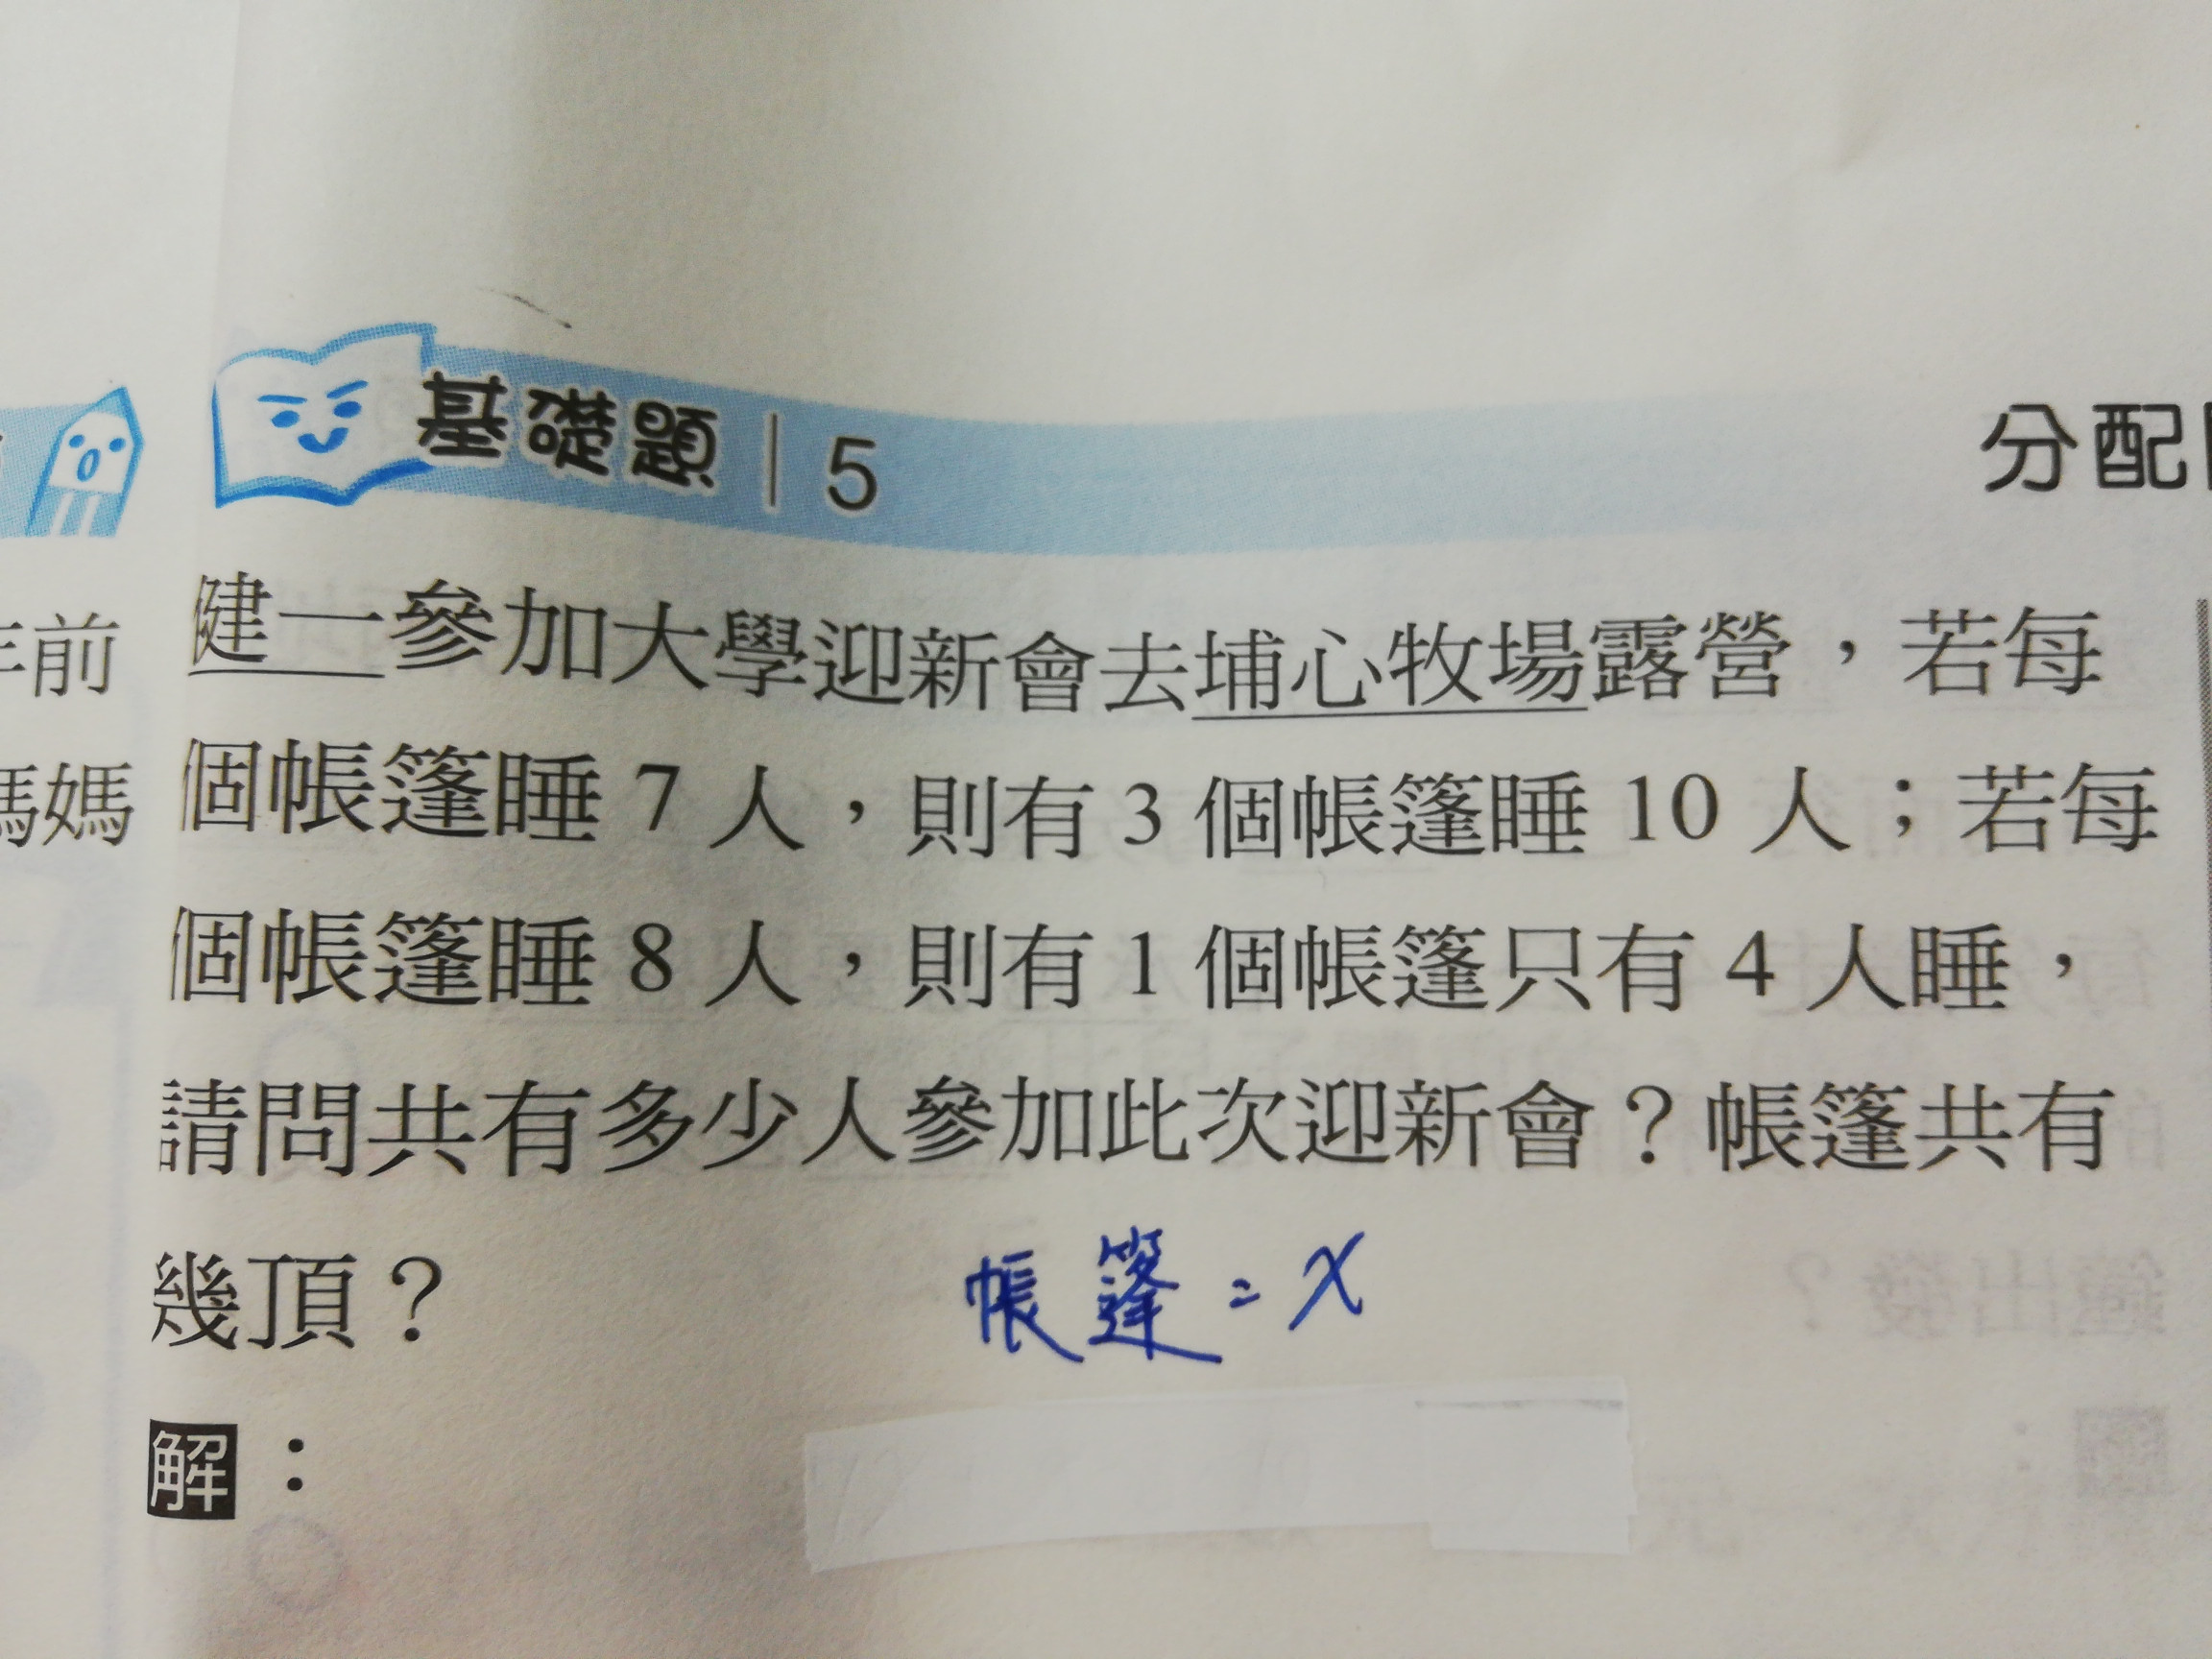 基礎題 | 5
分配
健一參加大學迎新會去埔心牧場露營，若每
個帳篷睡 7 人，則有 3 個帳篷睡 10 人；若每
個帳篷睡 8 人，則有 1 個帳篷只有 4 人睡，
請問共有多少人參加此次迎新會？帳篷共有
幾頂？
帳篷=x
解：
年前
媽媽